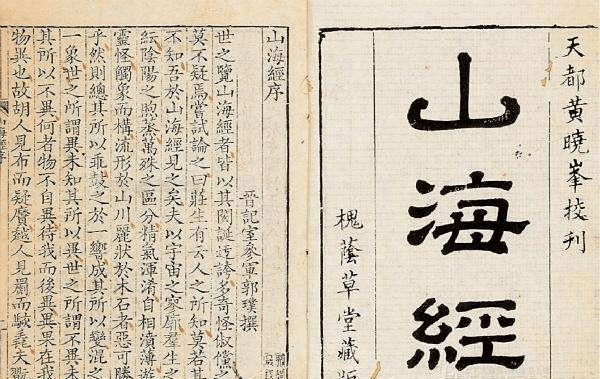 天都黃曉峯校刋
山海經
槐蔭草堂藏版
山海經序
晉記室參軍郭璞撰
世之覽山海經者皆以其閎誕迂誇多奇怪俶儻之
莫不疑焉嘗試論之曰莊生有云人之所知莫若其
不知吾於山海經見之矣夫以宇宙之寥廓羣生之
紜陰陽之煦蒸萬殊之區分精氣渾淆自相濆薄遊
靈怪觸象而構流形於山川麗狀於木石者惡可勝
乎然則總其所以乖鼓之於一響成其所以變混之
一象世之所謂異未知其所以異世之所謂不異未
其所以不異何者物不自異待我而後異異果在我
物異也故胡人見布而疑黂越人見罽而駭毳夫翫